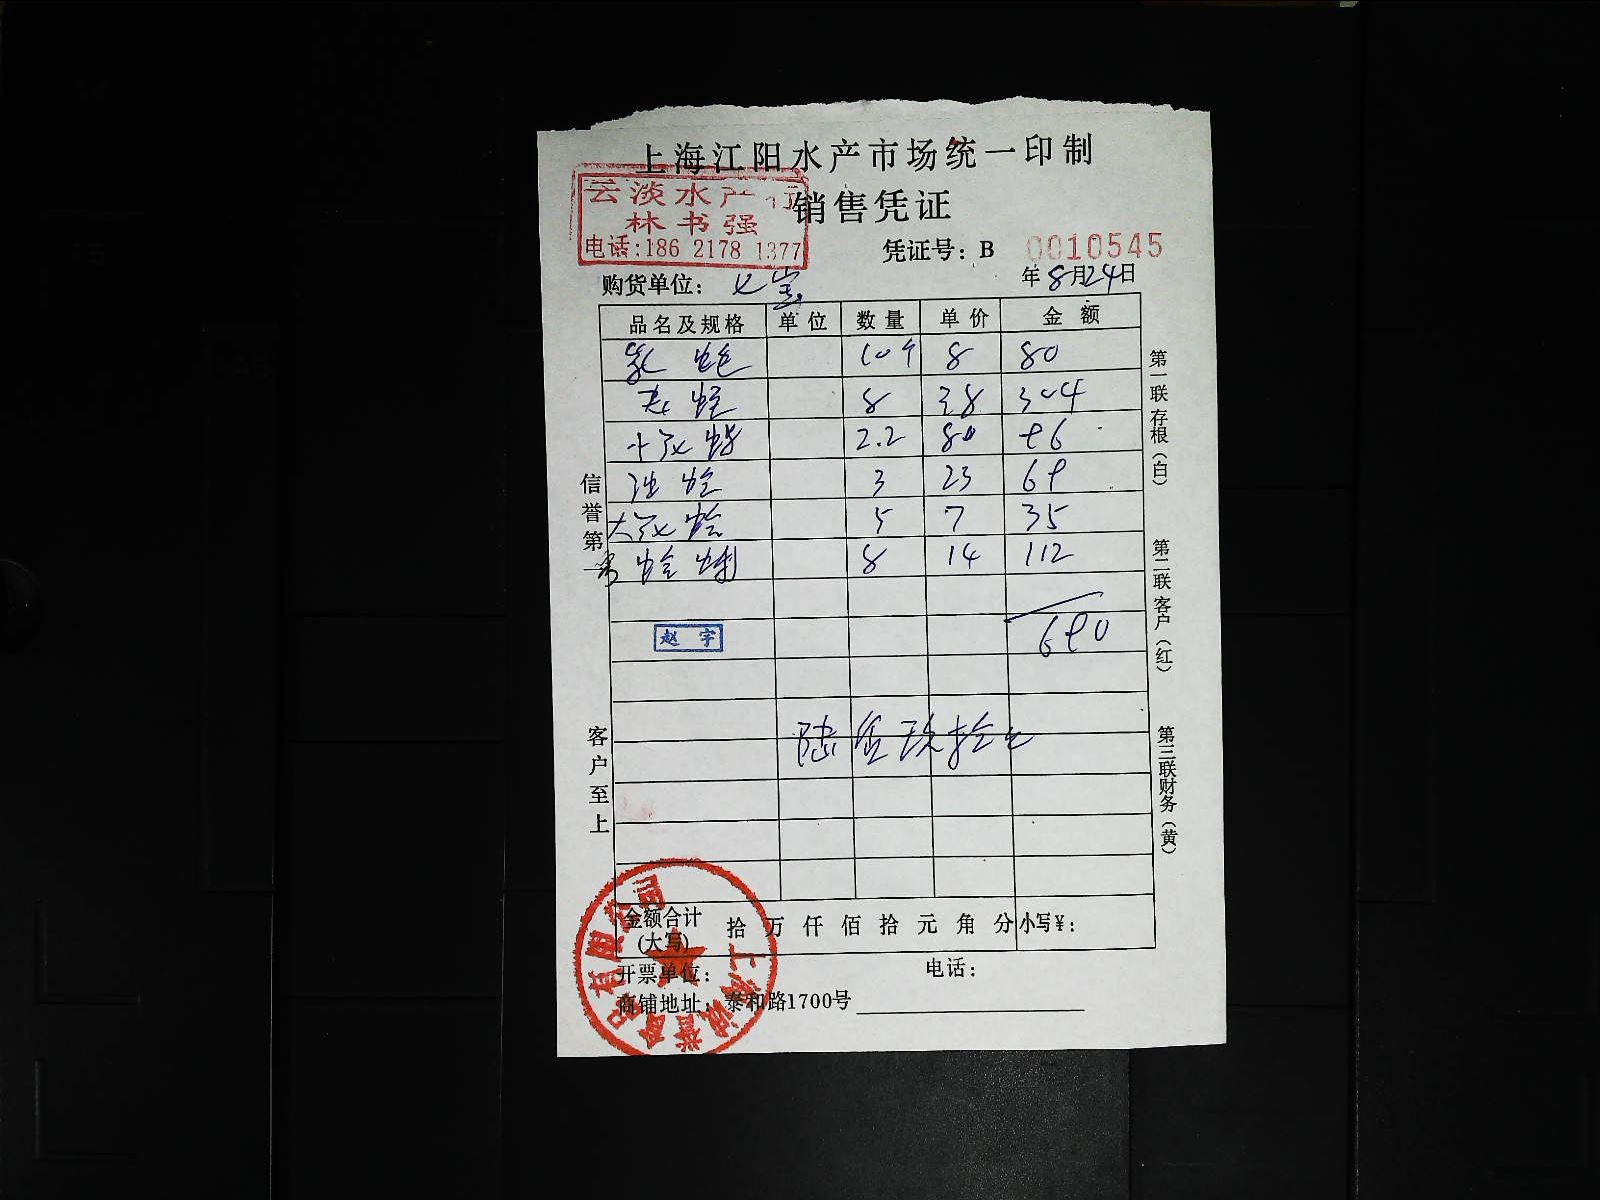 上海江阳水产市场统一印制
云淡水产行
林书强
电话:186 2178 1377
销售凭证
凭证号: B 0010545
购货单位: 七宝
年8月24日
品名及规格 单位 数量 单价 金额
10个 8 80
8 38 304
2.2 80 96
3 23 69
大 蛤 5 7 35
8 14 112
690
赵宇
陆佰玖拾元
信誉第一
客户至上
第一联存根(白)
第二联客户(红)
第三联财务(黄)
金额合计(大写) 拾 万 仟 佰 拾 元 角 分 小写¥:
开票单位: 电话:
商铺地址: 泰和路1700号